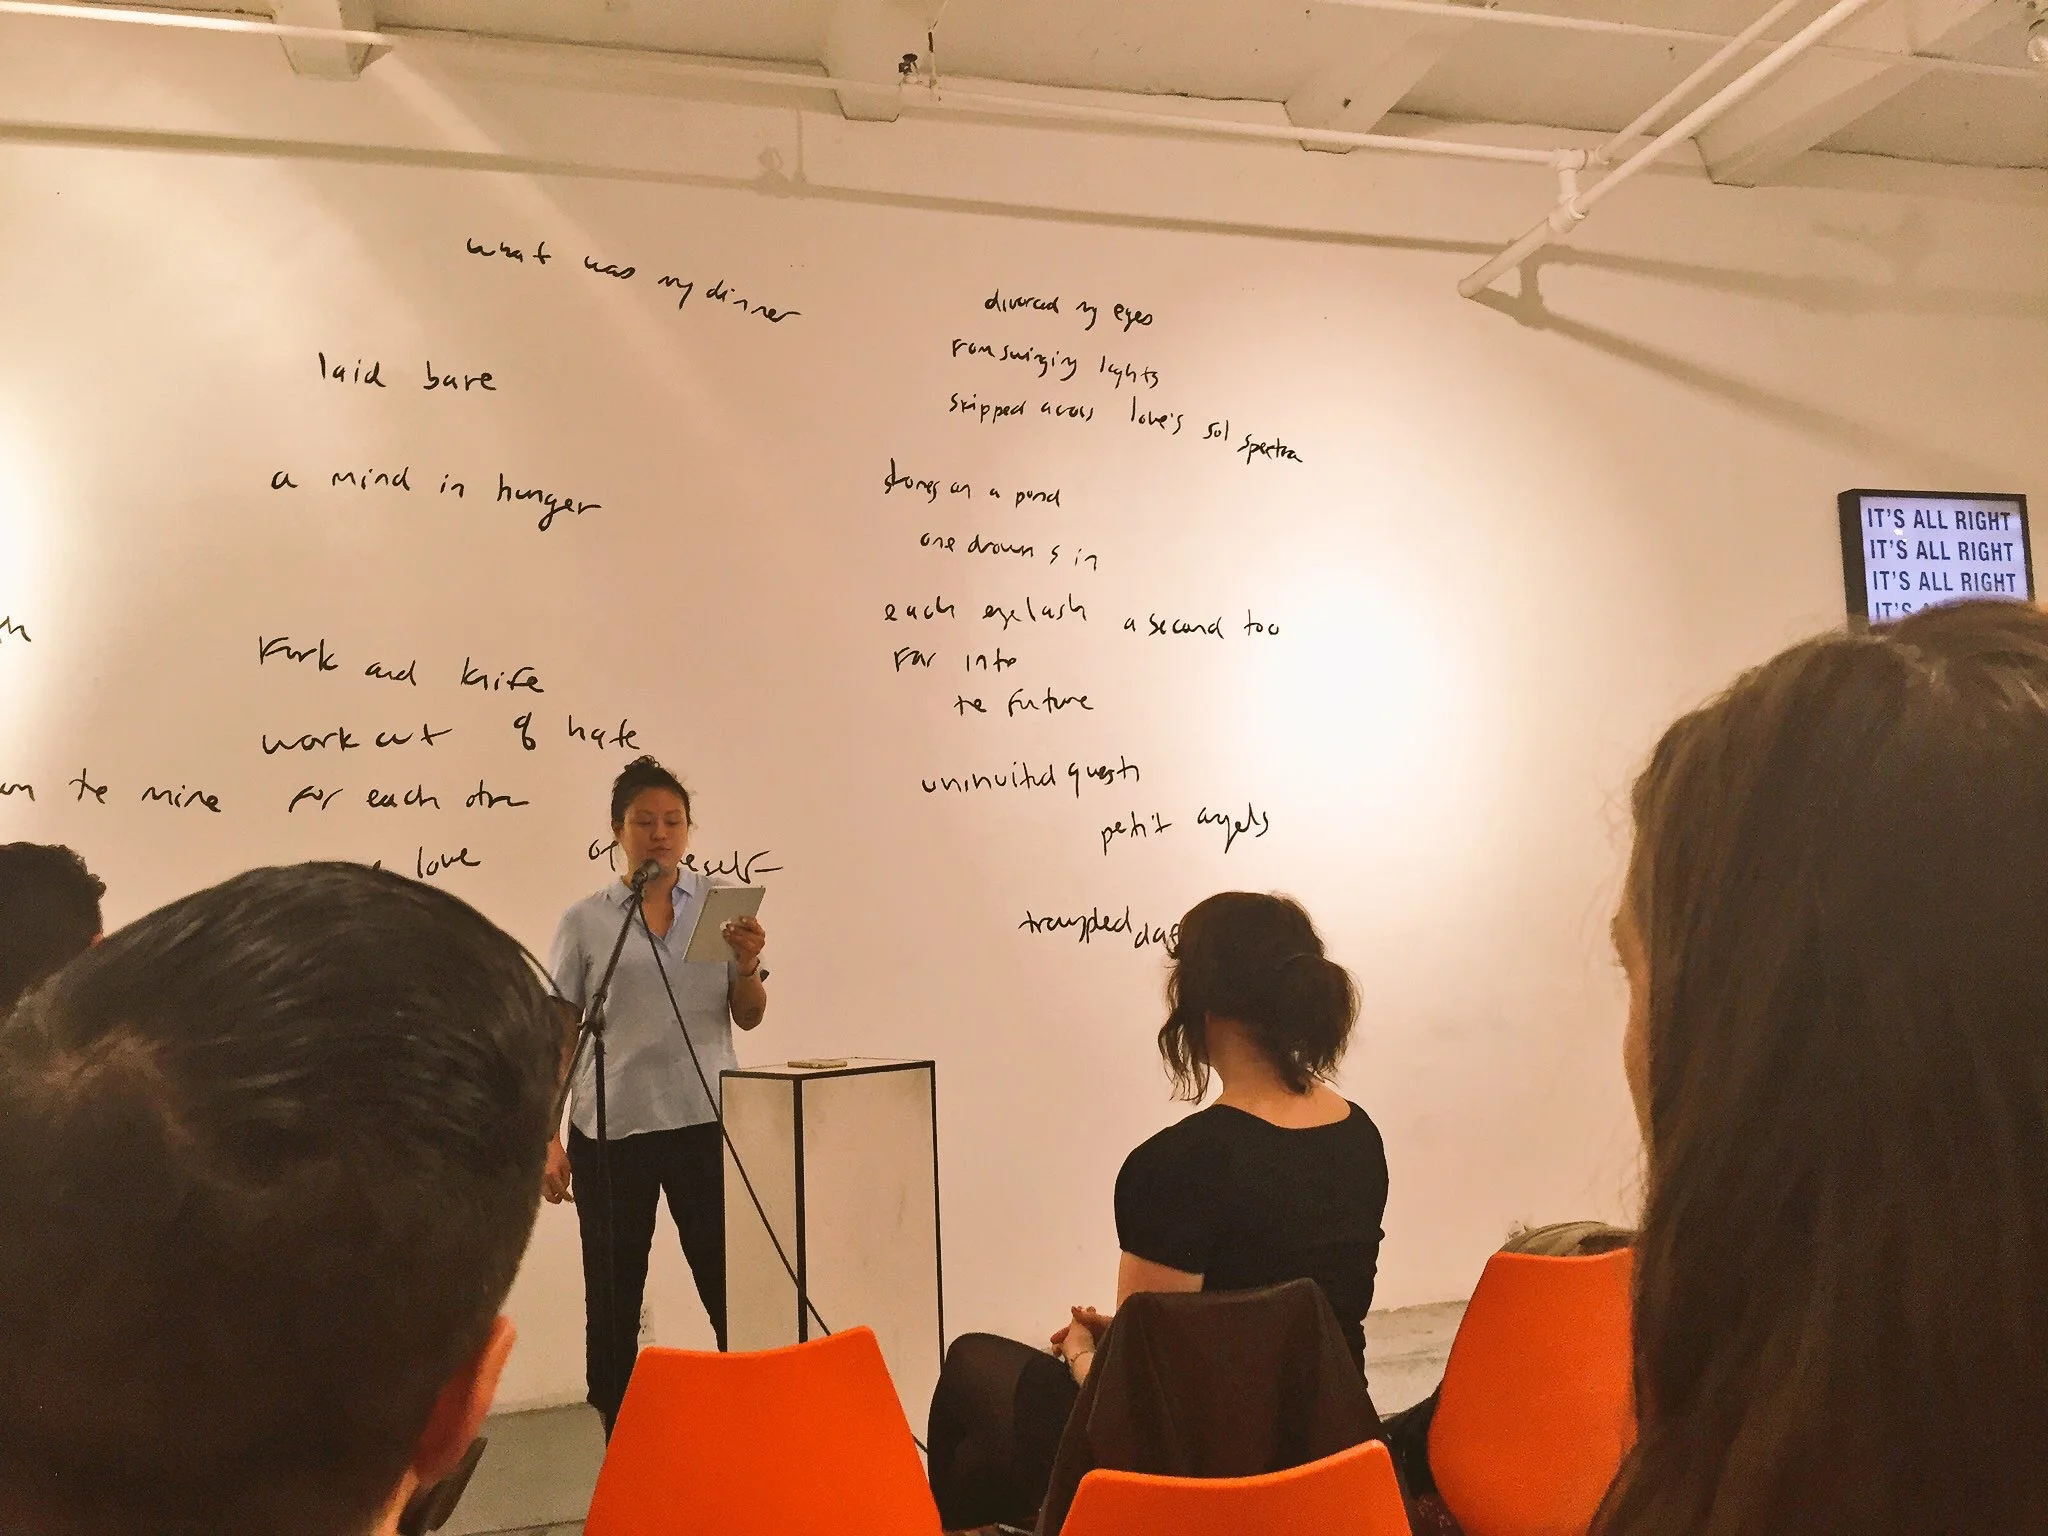 what was my dinner
laid bare
a mind in hunger
Fork and knife
work out of hate
te mine for each other
love of
divorced my eyes
From swinging lights
skipped across love's sol spectra
stones on a pond
one drowns in
each eyelash a second too
Far into
te Future
uninvited guests
petit angels
trampled
IT'S ALL RIGHT
IT'S ALL RIGHT
IT'S ALL RIGHT
IT'S